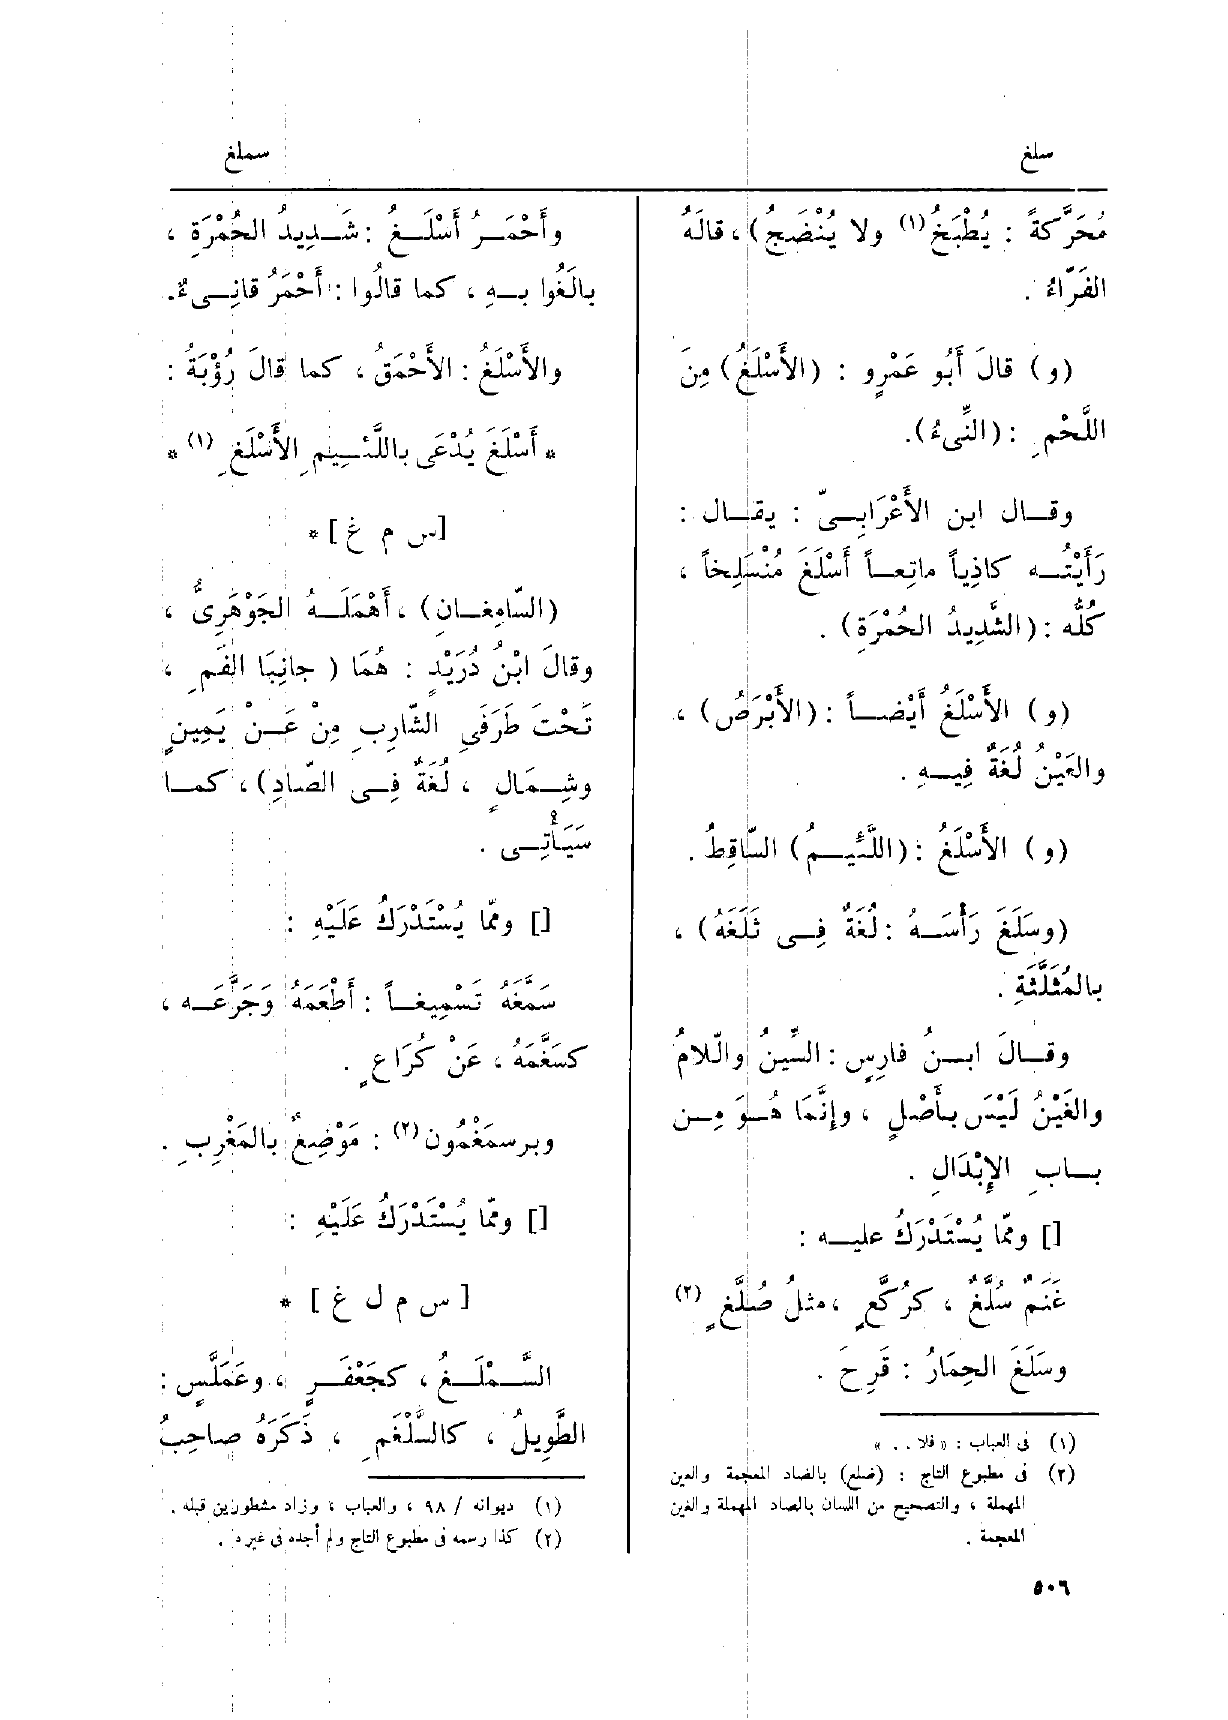 سلغ
سملغ
مُحَرَّكةً : يُطْبَخُ(١) ولا يُنْضَجُ) ، قالَهُ
الفَرّاءُ .
(و) قالَ أَبُو عَمْرٍو : (الأَسْلَغُ) مِنَ
اللَّحْمِ : (النِّىءُ).
وقـال ابن الأَعْرَابِـىّ : يقـال :
رَأَيْتُـه كاذِياً ماتِعـاً أَسْلَغَ مُنْسَلِخاً ،
كُلُّه : (الشَّدِيدُ الحُمْرَةِ) .
(و) الأَسْلَغُ أَيْضـاً : (الأَبْرَصُ) ،
والعَيْنُ لُغَةٌ فِيـهِ .
(و) الأَسْلَغُ : (اللَّئِيـمُ) السّاقِطُ .
(وسَلَغَ رَأْسَـهُ : لُغَةٌ فِـى ثَلَغَهُ) ،
بالمُثَلَّثَةِ .
وقـالَ ابـنُ فارِسٍ : السِّينُ والّلامُ
والغَيْنُ لَيْسَ بـأَصْلٍ ، وإِنَّمَا هُـوَ مِـن
بـابِ الإِبْدَالِ .
[] وممّا يُسْتَدْرَكُ عليـه :
غَنَمٌ سُلَّغٌ ، كرُكَّعٍ ، مثلُ صُلَّغٍ (٢)
وسَلَغَ الحِمَارُ : قَرِحَ .
(١) فى العباب : « فلا . . »
(٢) فى مطبوع التاج : (ضلع) بالضاد المعجمة والعين
المهملة ، والتصحيح من اللسان بالصاد المهملة والغين
المعجمة .
وأَحْمَـرُ أَسْلَـغُ : شَـدِيدُ الحُمْرَةِ ،
بالَغُوا بـهِ ، كما قالُوا : أَحْمَرُ قانِـىءٌ.
والأَسْلَغُ : الأَحْمَقُ ، كما قالَ رُؤْبَةُ :
* أَسْلَغَ يُدْعَى باللَّئِـيمِ الأَسْلَغِ (١) *
[س م غ] *
(السّامِغـانِ) ، أَهْمَلَـهُ الجَوْهَرِىُّ ،
وقالَ ابْنُ دُرَيْدٍ : هُمَا ( جانِبَا الفَمِ ،
تَحْتَ طَرَفَىِ الشّارِبِ مِنْ عَـنْ يَمِينٍ
وشِـمَالٍ ، لُغَةٌ فِـى الصّادِ) ، كمـا
سَيَأْتِـى .
[] وممّا يُسْتَدْرَكُ عَلَيْهِ :
سَمَّغَهُ تَسْمِيغـاً : أَطْعَمَهُ وَجَرَّعَـه ،
كسَغَّمَهُ ، عَنْ كُرَاعٍ .
وبرسمَغْمُون(٢) : مَوْضِعٌ بالمَغْرِبِ .
[] وممّا يُسْتَدْرَكُ عَلَيْهِ :
[ س م ل غ ] *
السَّـمْلَـغُ ، كجَعْفَـرٍ ، وعَمَلَّسٍ :
الطَّوِيلُ ، كالسَّلْغَمِ ، ذَكَرَهُ صاحِبُ
(١) ديوانه / ٩٨ ، والعباب ، وزاد مشطورين قبله .
(٢) كذا رسمه فى مطبوع التاج ولم أجده فى غيره .
٥٠٦